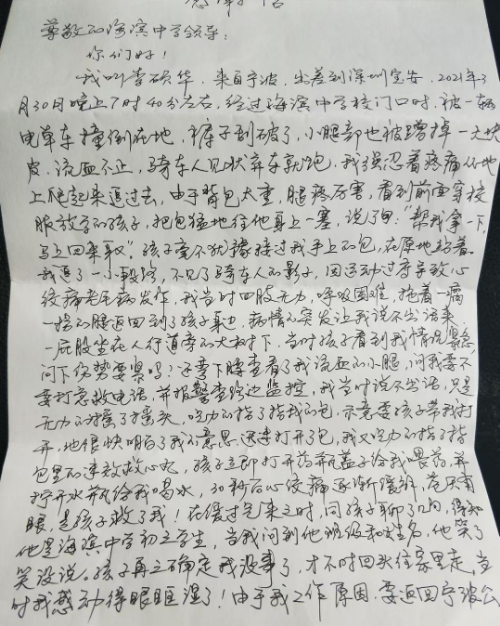 感谢信
尊敬的海滨中学领导：
你们好！
我叫李硕华，来自宁波，出差到深圳宝安，2021年3
月30日晚上7时40分左右，经过海滨中学校门口时，被一辆
电单车撞倒在地，裤子刮破了，小腿部也被蹭掉一大块
皮，流血不止，骑车人见状弃车就跑，我强忍着疼痛从地
上爬起来追过去，由于背包太重，腿疼厉害，看到前面穿校
服放学的孩子，把包猛地往他身上一塞，说了句："帮我拿一下，
马上回来取"。孩子毫不犹豫接过我手上的包，在原地站着。
我追了一小段路，不见了骑车人的影子，因运动过度导致心
绞痛老毛病发作，我当时四肢无力，呼吸困难，拖着一瘸
一拐的腿返回到了孩子身边，病情的突发让我说不出话来，
一屁股坐在人行道旁的大树下，当时孩子看到我情况紧急
问下伤势要紧吗？还弯下腰查看了我流血的小腿，问我要不
要打急救电话，并报警查路边监控，我当时说不出话，只是
无力的摇了摇头，吃力的指了指我的包，示意要孩子帮我打
开，他很快明白了我的意思，迅速打开了包，我又吃力的指了指
包里的速效救心丸，孩子立即打开药瓶盖子给我喂药，并
拧开水瓶给我喝水，30秒后心绞痛逐渐缓解，苍天有
眼，是孩子救了我！在缓过气来之时，同孩子聊了几句，得知
他是海滨中学初三学生，当我问到他班级和姓名，他笑了
笑没说。孩子再三确定我没事了，才不时回头往家里走，当
时我感动得眼眶湿了！由于我工作原因，要返回宁波公